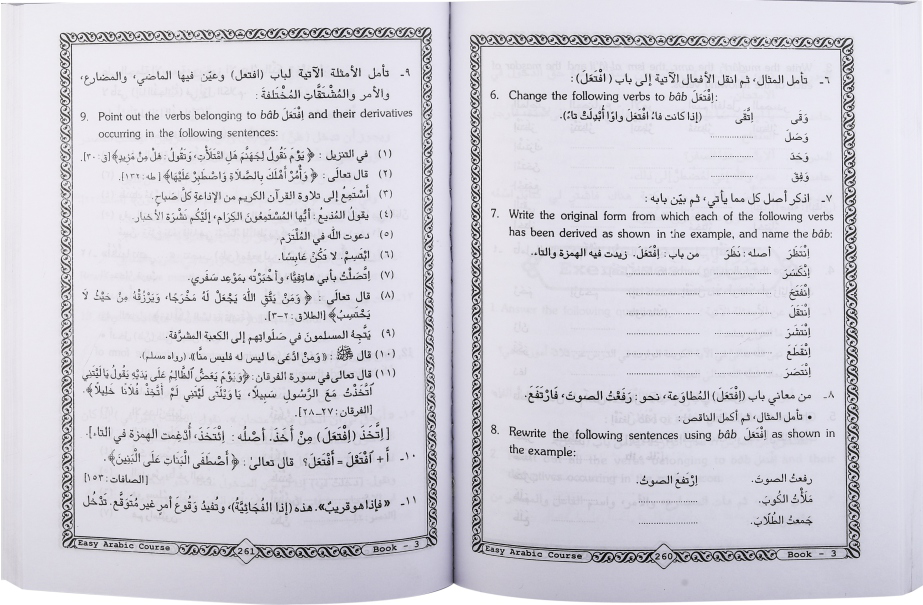 ٦ـ تأمل المثال، ثم انقل الأفعال الآتية إلى باب (افْتَعَلَ):
6. Change the following verbs to bâb اِفْتَعَلَ:
وَقَى اِتَّقَى (إذا كانت فاءُ افْتَعَلَ واوًا أُبْدِلَتْ تاءً).
وَصَلَ ................
وَحَدَ ................
وَفِقَ ................
٧ـ اذكر أصل كل مما يأتي، ثم بيّن بابه:
7. Write the original form from which each of the following verbs
has been derived as shown in the example, and name the bâb:
اِنْتَظَرَ أصله: نَظَرَ من باب: اِفْتَعَلَ. زيدت فيه الهمزة والتاء.
اِنْكَسَرَ ................ ................
اِنْفَتَحَ ................ ................
اِنْتَقَلَ ................ ................
اِنْتَشَرَ ................ ................
اِنْقَطَعَ ................ ................
اِنْتَصَرَ ................ ................
٨ـ من معاني باب (اِفْتَعَلَ) المُطاوَعَة، نحو: رَفَعْتُ الصوتَ، فَارْتَفَعَ.
• تأمل المثال، ثم أكمل الناقص:
8. Rewrite the following sentences using bâb اِفْتَعَلَ as shown in
the example:
رفعتُ الصوتَ. اِرْتَفَعَ الصوتُ.
مَلَأْتُ الكُوبَ. ................
جَمعتُ الطُلَّابَ. ................
Easy Arabic Course 260 Book - 3
٩ـ تأمل الأمثلة الآتية لباب (افتعل) وعيّن فيها الماضي، والمضارع،
والأمر والمُشْتَقَّاتِ المُخْتَلفةَ:
9. Point out the verbs belonging to bâb اِفْتَعَلَ and their derivatives
occurring in the following sentences:
(١) في التنزيل: ﴿يَوْمَ نَقُولُ لِجَهَنَّمَ هَلِ امْتَلَأْتِ وَتَقُولُ: هَلْ مِنْ مَزِيدٍ﴾ [ق: ٣٠].
(٢) قال تعالَى: ﴿وَأْمُرْ أَهْلَكَ بِالصَّلَاةِ وَاصْطَبِرْ عَلَيْهَا﴾ [طه: ١٣٢].
(٣) أَسْتَمِعُ إلى تلاوة القرآن الكريم من الإذاعةِ كلَّ صباح.
(٤) يقولُ المُذيعُ: أيُّها المُسْتَمِعُونَ الكِرَام، إلَيْكُم نَشْرَةَ الأخبار.
(٥) دعوت اللَّه في المُلْتَزم.
(٦) ابْتَسِمْ. لا تَكُنْ عَابِسًا.
(٧) اِتَّصَلْتُ بأبي هاتِفِيًّا، وأخْبَرْتُه بمَوْعِد سَفَري.
(٨) قال تعالَى: ﴿وَمَنْ يَتَّقِ اللَّهَ يَجْعَلْ لَهُ مَخْرَجًا، وَيَرْزُقْهُ مِنْ حَيْثُ لَا
يَحْتَسِبُ﴾ [الطلاق: ٢-٣].
(٩) يَتَّجِهُ المسلمونَ في صَلَواتِهم إلى الكعبة المشرَّفة.
(١٠) قال ﷺ: «وَمَنْ ادَّعَى ما ليس له فليس منَّا». (رواه مسلم).
(١١) قال تعالى في سورة الفرقان: ﴿وَيَوْمَ يَعَضُّ الظَّالِمُ عَلَى يَدَيْهِ يَقُولُ يَا لَيْتَنِي
اتَّخَذْتُ مَعَ الرَّسُولِ سَبِيلًا، يَا وَيْلَتَى لَيْتَنِي لَمْ أَتَّخِذْ فُلَانًا خَلِيلًا﴾.
[الفرقان: ٢٧-٢٨].
[اِتَّخَذَ (اِفْتَعَلَ) مِنْ أَخَذَ، أَصْلُه: اِئْتَخَذَ، أُدْغِمت الهمزة في التاء].
١٠ـ أَ + اَفْتَعَلَ = أَفْتَعَلَ؟ قال تعالى: ﴿أَصْطَفَى الْبَنَاتِ عَلَى الْبَنِينَ﴾.
[الصافات: ١٥٣]
١١ـ «فإذا هو قريبٌ». هذه (إذا الفُجَائِيَّةُ)، وتُفيدُ وقُوعَ أمرٍ غيرِ مُتَوقَّعٍ. تَدْخُل
Easy Arabic Course 261 Book - 3